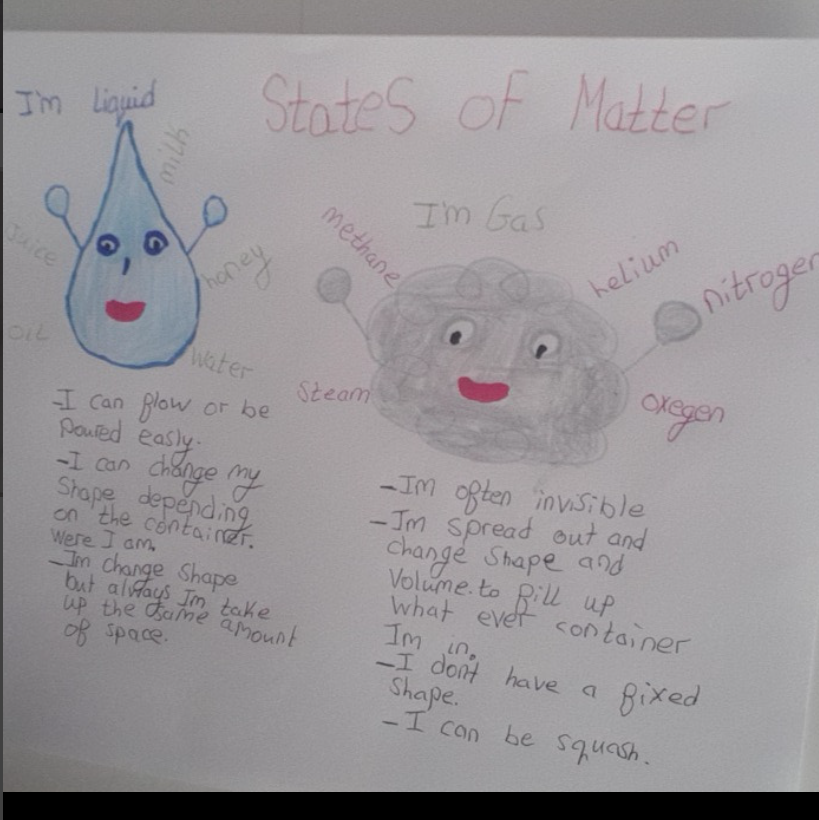 States of Matter
I'm Liquid
milk
Juice
honey
oil
water
-I can flow or be
Poured easly.
-I can change my
Shape depending
on the container.
Were I am.
-Im change Shape
but always Im take
up the same amount
of space.
I'm Gas
methane
helium
nitrogen
Steam
oxegen
-Im often invisible
-Im spread out and
change Shape and
Volume.to fill up
what ever container
Im in.
-I don't have a fixed
Shape.
-I can be squash.